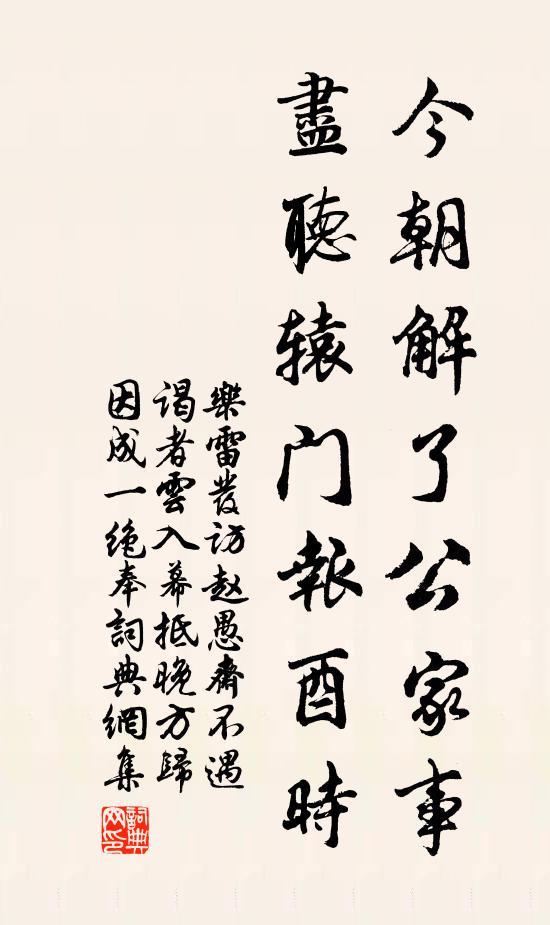 今朝解了公家事
盡聽辕门報酉時
樂雷发访赵愚齋不遇
谒者雲入幕抵晚方歸
因成一绝奉詞典網集
詞典網印